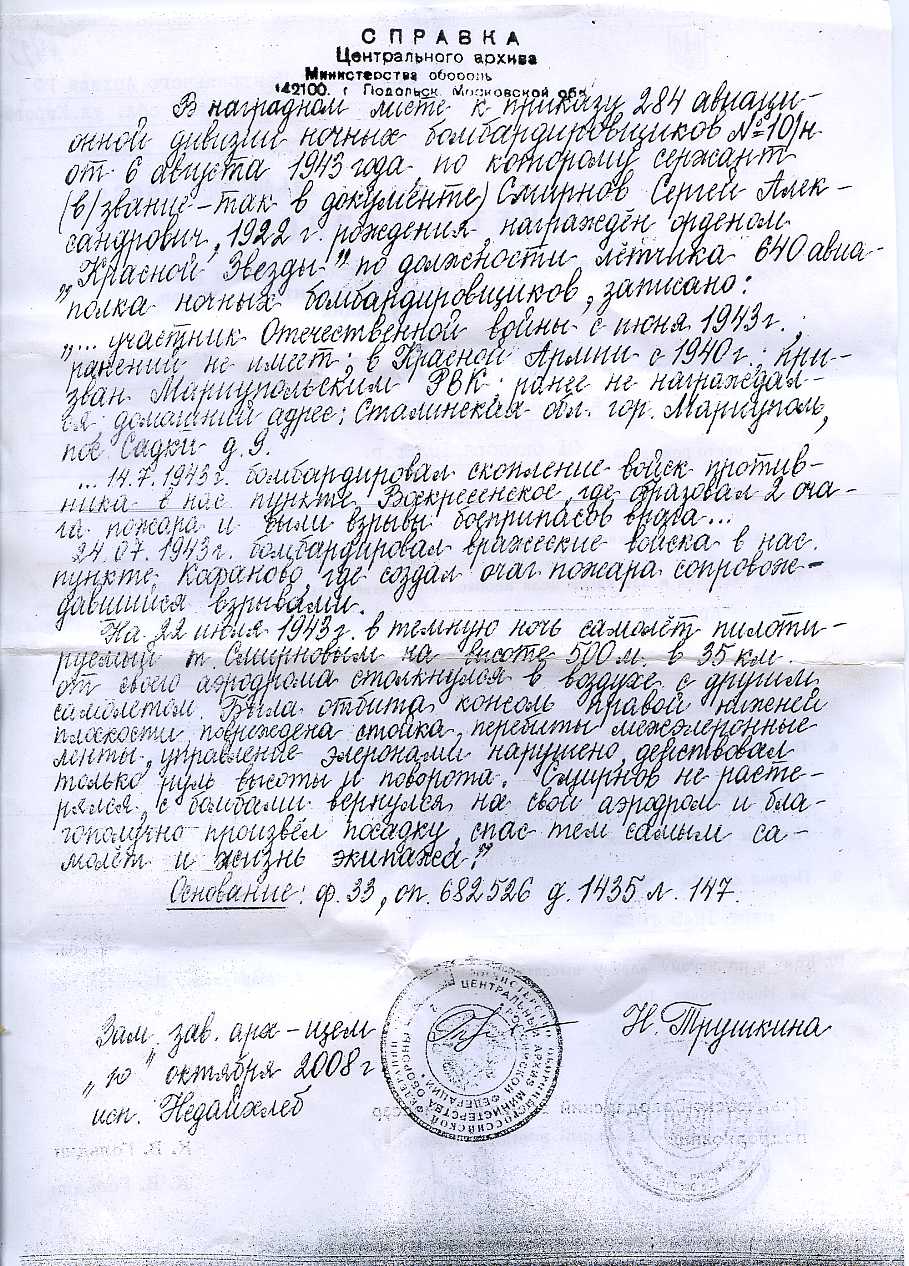 СПРАВКА
Центрального архива
Министерства оборонь
142100. г Подольск Московской обл
В наградном листе к приказу 284 авиаци-
онной дивизии ночных бомбардировщиков №10/н
от 6 августа 1943 года, по которому сержант
(в/звание-так в документе) Смирнов Сергей Алек-
сандрович, 1922 г. рождения, награждён орденом
„Красной Звезды" по должности лётчика 640 авиа-
полка ночных бомбардировщиков, записано:
„... участник Отечественной войны с июня 1943г.;
ранений не имеет; в Красной Армии с 1940г.; при-
зван Мариупольским РВК; ранее не награждал-
ся; домашний адрес: Сталинская обл. гор. Мариуполь,
пос. Садки д. 9.
... 14.7.1943г. бомбардировал скопление войск против-
ника в нас. пункте Воскресенское, где образовал 2 оча-
га пожара и были взрывы боеприпасов врага...
24.07.1943г. бомбардировал вражеские войска в нас.
пункте Кофаново, где создал очаг пожара сопровож-
давшийся взрывами.
На 22 июля 1943г. в темную ночь самолёт пилоти-
руемый т. Смирновым на высоте 500 м. в 35 км.
от своего аэродрома столкнулся в воздухе с другим
самолетом. Была отбита консоль правой нижней
плоскости, повреждена стойка, перебиты межэлеронные
ленты, управление элеронами нарушено, действовал
только руль высоты и поворота. Смирнов не расте-
рялся, с бомбами вернулся на свой аэродром и бла-
гополучно произвёл посадку, спас тем самым са-
молёт и жизнь экипажа."
Основание: ф. 33, оп. 682526 д. 1435 л. 147.
Зам. зав. арх-щем
Н. Трушкина
„10" октября 2008 г
исп. Недайхлеб
ЦЕНТРАЛЬНЫЙ АРХИВ МИНИСТЕРСТВА ОБОРОНЫ РОССИЙСКОЙ ФЕДЕРАЦИИ